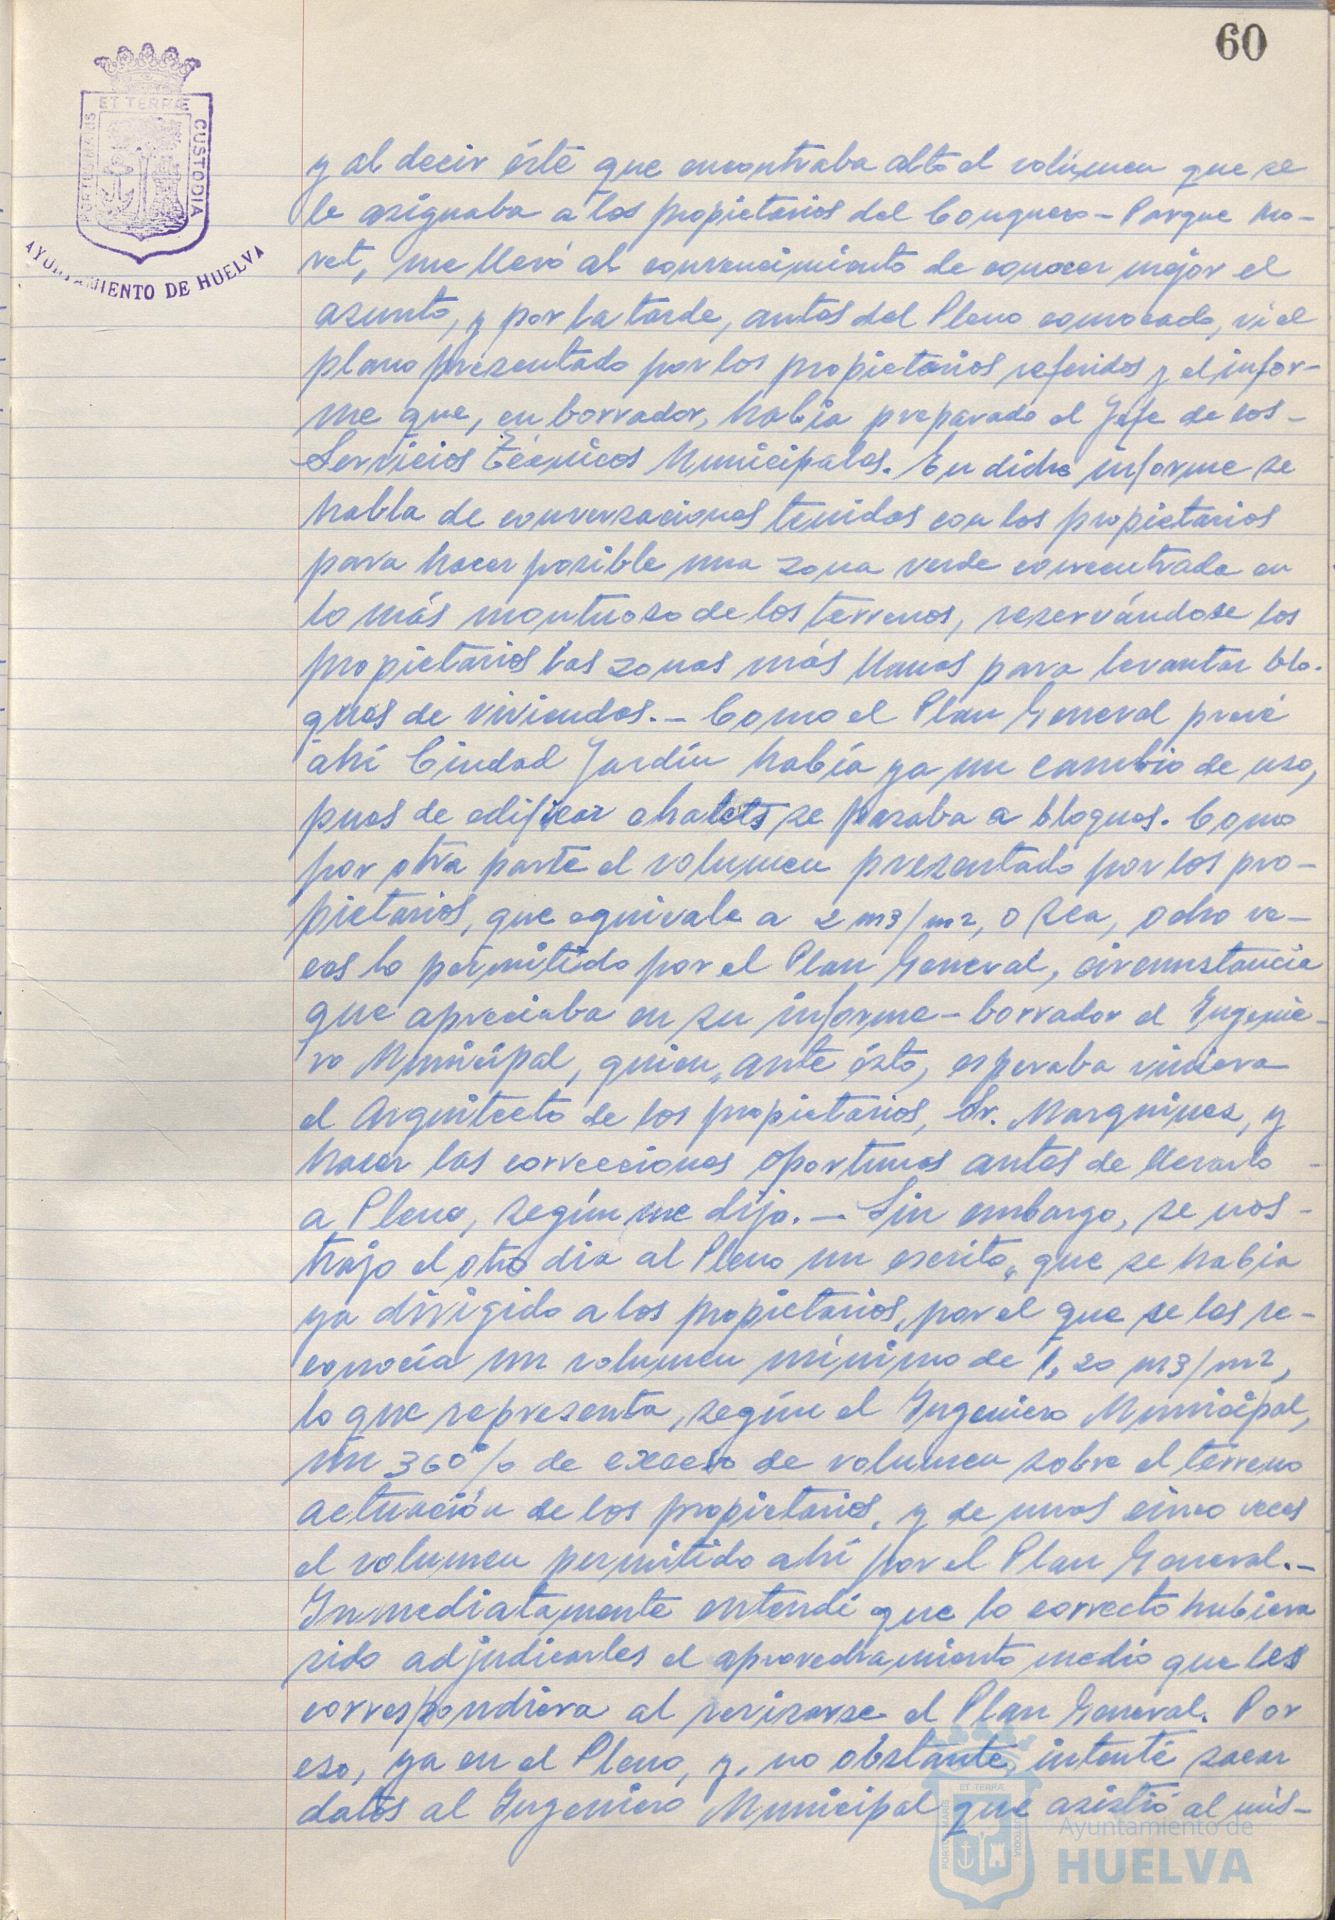 60
ET TERRÆ
PORTUS MARIS
CUSTODIA
AYUNTAMIENTO DE HUELVA
y al decir éste que encontraba alto el volúmen que se
le asignaba a los propietarios del Conquero - Parque Mo-
ret, me llevó al convencimiento de conocer mejor el
asunto, y por la tarde, antes del Pleno convocado, vi el
plano presentado por los propietarios referidos y el infor-
me que, en borrador, había preparado el Jefe de los -
Servicios Técnicos Municipales. En dicho informe se
habla de conversaciones tenidas con los propietarios
para hacer posible una zona verde concentrada en
lo más montuoso de los terrenos, reservándose los
propietarios las zonas más llanas para levantar blo-
ques de viviendas. - Como el Plan General prevé
ahí Ciudad Jardín había ya un cambio de uso,
pues de edificar chalets se pasaba a bloques. Como
por otra parte el volumen presentado por los pro-
pietarios, que equivale a 2 m3/m2, o sea, ocho ve-
ces lo permitido por el Plan General, circunstancia
que apreciaba en su informe - borrador el Ingenie-
ro Municipal, quien, ante ésto, esperaba viniera
el Arquitecto de los propietarios, Sr. Marquínez, y
hacer las correcciones oportunas antes de llevarlo -
a Pleno, según me dijo. - Sin embargo, se nos -
trajo el otro dia al Pleno un escrito, que se habia
ya dirigido a los propietarios, por el que se les re-
conocía un volumen mínimo de 1,20 m3/m2,
lo que representa, según el Ingeniero Municipal,
un 360% de exceso de volumen sobre el terreno
actuación de los propietarios, y de unas cinco veces
el volumen permitido ahí por el Plan General. -
Inmediatamente entendí que lo correcto hubiera
sido adjudicarles el aprovechamiento medio que les
correspondiera al revisarse el Plan General. Por
eso, ya en el Pleno, y, no obstante, intenté sacar
datos al Ingeniero Municipal que asistió al mis-
ET TERRÆ
PORTUS MARIS
CUSTODIA
Ayuntamiento de
HUELVA